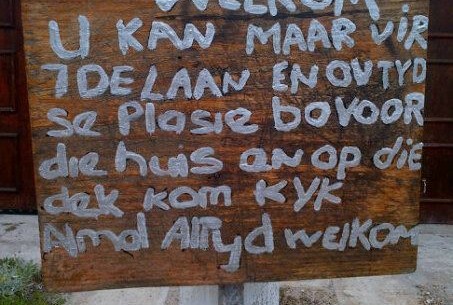 WELKOM
U KAN MAAR VIR
7DE LAAN EN OUTYD
se Plasie bovoor
die huis an op die
dek kom KYK
Nmol Altyd welkom